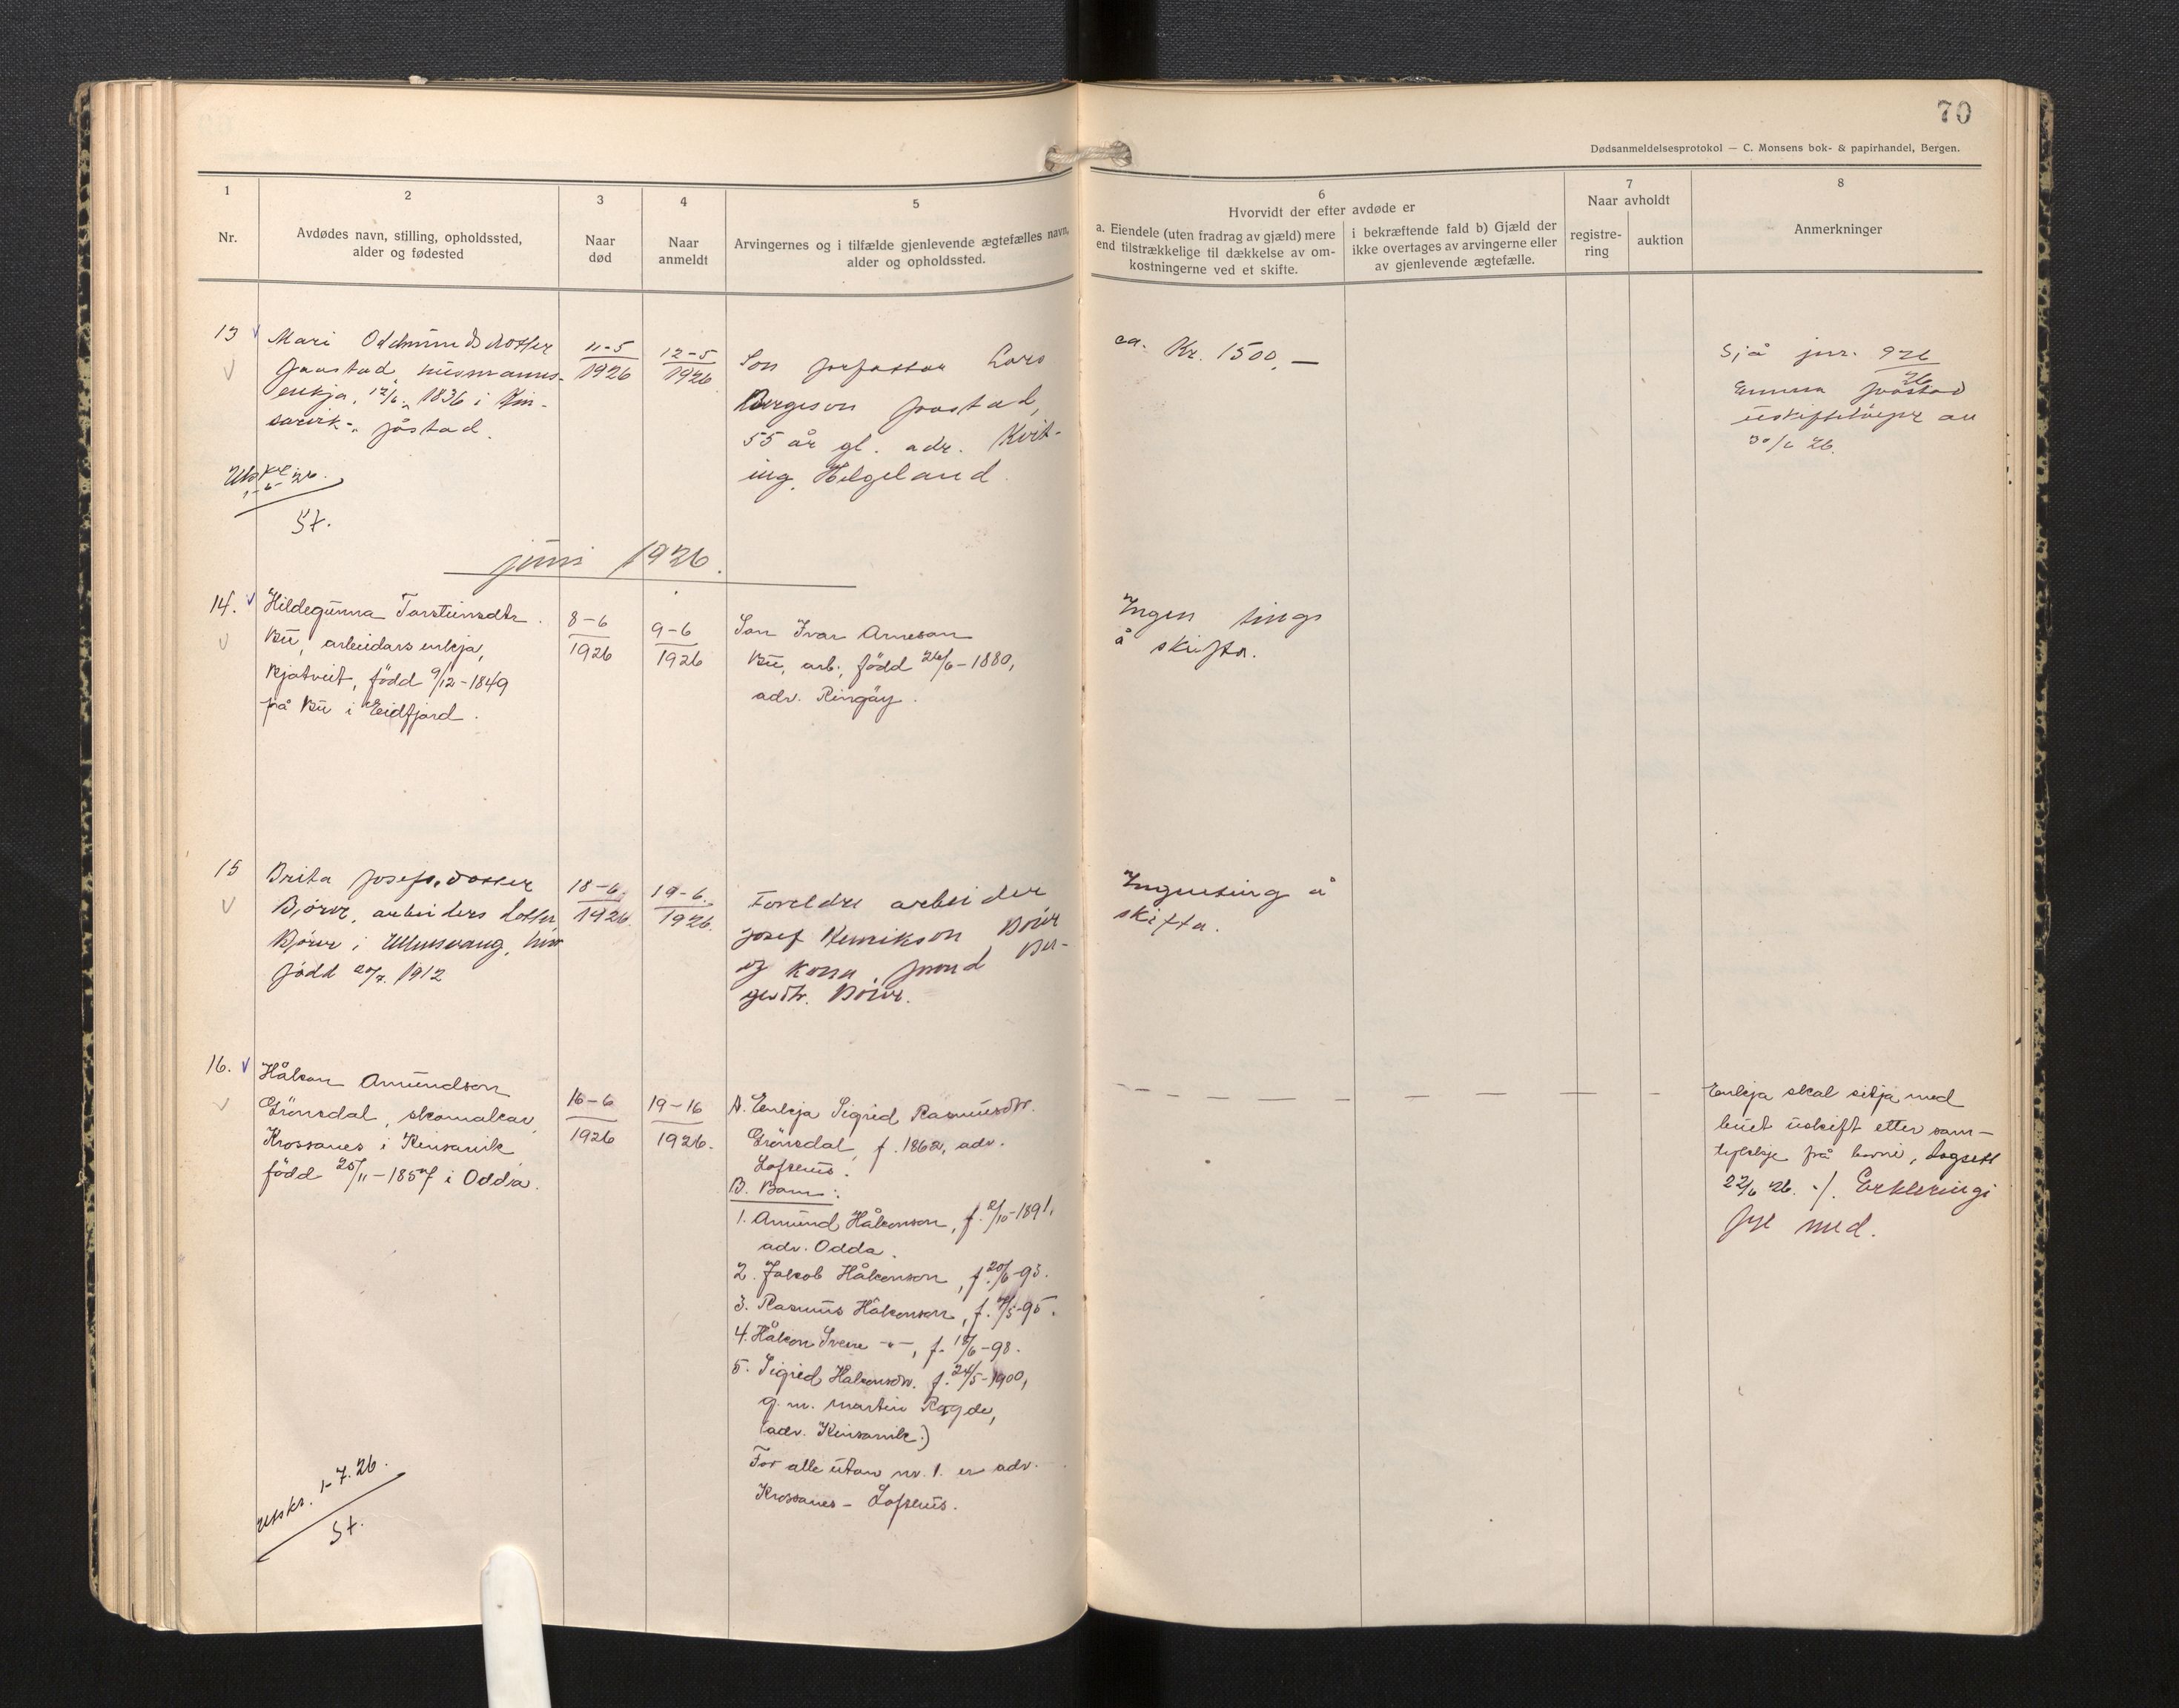 70
Dødsanmeldelsesprotokol — C. Monsens bok- & papirhandel, Bergen.
1
Nr.
2
Avdødes navn, stilling, opholdssted,
alder og fødested
3
Naar
død
4
Naar
anmeldt
5
Arvingernes og i tilfælde gjenlevende ægtefælles navn,
alder og opholdssted.
6
Hvorvidt der efter avdøde er
a. Eiendele (uten fradrag av gjæld) mere
end tilstrækkelige til dækkelse av om-
kostningerne ved et skifte.
i bekræftende fald b) Gjæld der
ikke overtages av arvingerne eller
av gjenlevende ægtefælle.
7
Naar avholdt
registre-
ring
auktion
8
Anmerkninger
13
Mari Oddmundsdotter
Jaastad, husmanns-
enkja, 12/6 1836 i Kin-
sarvik - Jåstad.
11-5
1926
12-5
1926
Son forfattar Lars
Bergeson Jaastad,
55 år gl. adr. Kvit-
ing, Helgeland
ca. Kr. 1500,—
Sjå jnr. 926
26
Jåstad
30/6 26.
St.
juni 1926.
14.
Hildegunna Torsteinsdtr.
Bu, arbeidars enkja,
Kjatveit, född 9/12-1849
på Bu i Eidfjord.
8-6
1926
9-6
1926
Son Ivar Arneson
Bu, arb., född 26/6-1880,
adr. Ringöy.
Ingen tings
å skifta.
15
Brita Josefsdotter
Björve, arbeiders dotter,
Björve i Ullensvang,
född 20/7. 1912
18-6.
1926.
19-6.
1926.
Foreldre arbeider
Josef Henrikson Börve
og kona, Ber-
gesdtr. Börve.
Ingenting å
skifta.
16.
Håkon Amundson
Grönsdal, skomakar,
Krossanes i Kinsarvik,
född 25/11-1857 i Odda.
16-6
1926
19-16
1926.
A. Enkja Sigrid Rasmusdtr.
Grönsdal, f. 1862, adr.
Lofthus.
B. Barn:
1. Amund Håkonson, f. 2/10-1891,
adr. Odda.
2. Jakob Håkonson, f. 20/6-93.
3. Rasmus Håkonson, f. 4/5-95.
4. Håkon Sverre -"-, f. 18/6-98.
5. Sigrid Håkonsdtr. f. 24/5-1900,
g. m. Martin Ragde,
(adr. Kinsarvik.)
For alle utan nr. 1. er adr.
Krossanes - Lofthus.
Enkja skal sitja med
buet uskift etter sam-
tykkje frå borni, dagsett
22/6 26. ./. Erkleringi
fyl med.
Utskr. 1-7.26.
St.